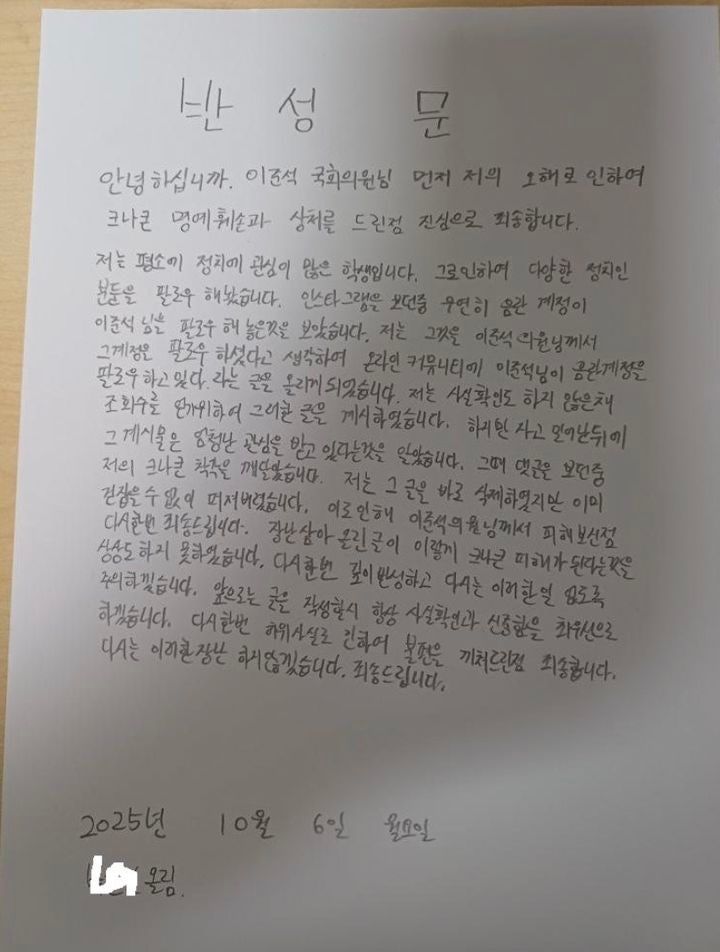 반 성 문
안녕하십니까. 이준석 국회의원님 먼저 저의 오해로 인하여
크나큰 명예훼손과 상처를 드린점 진심으로 죄송합니다.
저는 평소에 정치에 관심이 많은 학생입니다. 그로인하여 다양한 정치인
분들을 팔로우 해놨습니다. 인스타그램을 보던중 우연히 음란 계정이
이준석 님을 팔로우 해 놓은것을 보았습니다. 저는 그것을 이준석 의원님께서
그계정을 팔로우 하셨다고 생각하여 온라인 커뮤니티에 이준석님이 음란계정을
팔로우하고 있다. 라는 글을 올리게 되었습니다. 저는 사실확인도 하지 않은채
조회수를 위하여 그러한 글을 게시하였습니다. 하지만 자고 일어난뒤에
그 게시물은 엄청난 관심을 받고 있다는것을 알았습니다. 그때 댓글을 보던중
저의 크나큰 착각을 깨달았습니다. 저는 그 글을 바로 삭제하였지만 이미
걷잡을 수 없이 퍼져버렸습니다. 이로인해 이준석의원님께서 피해보신점
다시한번 죄송드립니다. 장난삼아 올린글이 이렇게 크나큰 피해가 된다는것을
상상도 하지 못하였습니다. 다시한번 깊이반성하고 다시는 이러한일 없도록
주의하겠습니다. 앞으로는 글을 작성할시 항상 사실확인과 신중함을 최우선으로
하겠습니다. 다시한번 허위사실로 인하여 불편을 끼쳐드린점 죄송합니다.
다시는 이러한장난 하지않겠습니다. 죄송드립니다.
2025년 10월 6일 월요일
올림.